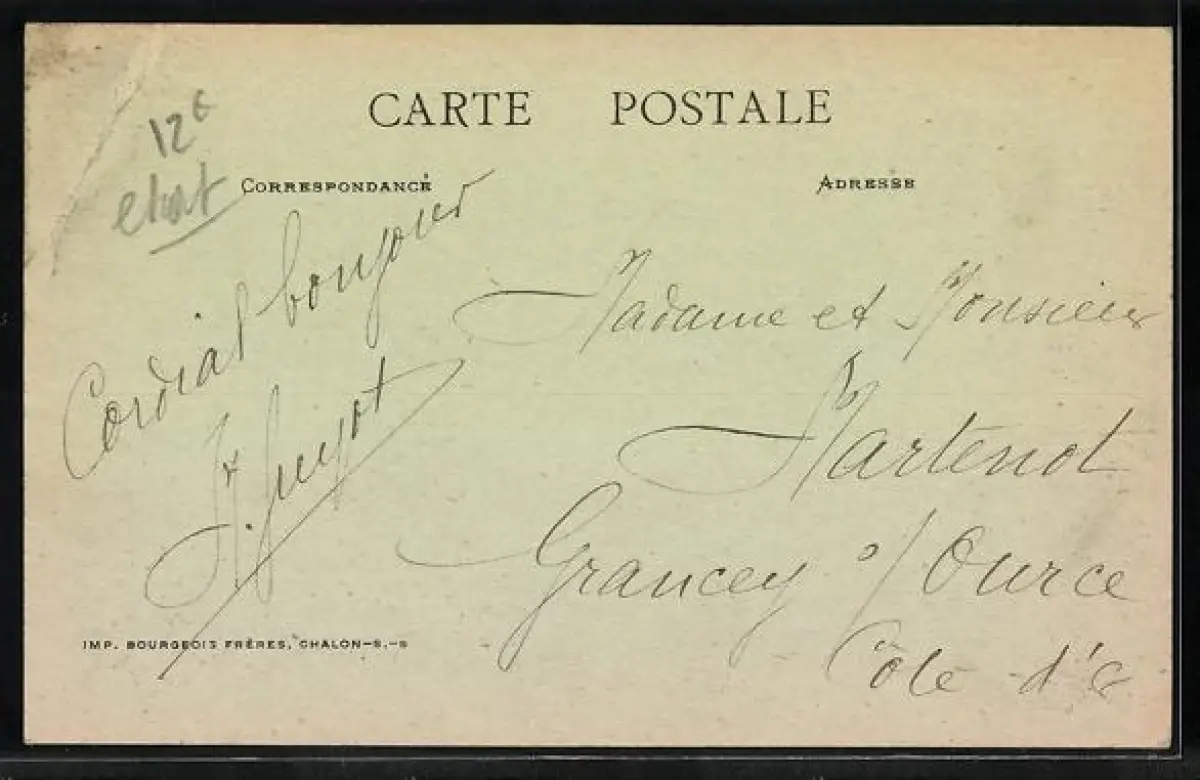 CARTE POSTALE
12€
CORRESPONDANCE
ADRESSE
Cordial bonjour
H. Guyot
Madame et Monsieur
Martenot
Grancey s/ Ource
Côte d'
IMP. BOURGEOIS FRÈRES, CHALON-S.-S